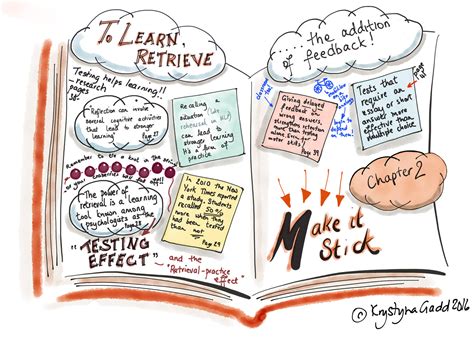 To LEARN,
RETRIEVE
Testing helps learning!!
- research
pages
Reflection can involve
several cognitive activities
that lead to stronger
learning
Recalling a
situation
can lead to
stronger
learning
It's a form of
practice
Remember to tie a knot in the
your cranberries
The power of
retrieval is a learning
tool known among
psychologists as the
"TESTING
EFFECT"
and the
"Retrieval-practice
effect"
In 2010 the New
York Times reported
a study. Students
recalled 50%
more when they
had been tested
than not
Page 29
.....the addition
of feedback!
Giving delayed
feedback on
wrong answers,
strengthens retention
more than testing
alone
motor skills!
Page 39
Tests that
require an
essay or short
answer more
effective than
multiple choice
Chapter 2
Make it
Stick
© Krystyna Gadd 2016